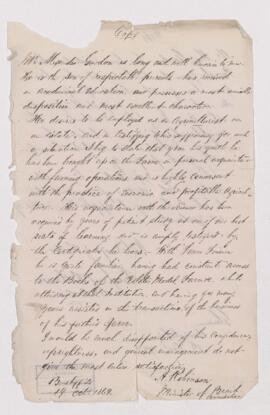 Copy
Mr Alexander Gordon is long and well known to me.
He is the son of respectable parents - has received
an academical education, and possesses a most amiable
disposition and most excellent character.
His desire is to be employed as an Agriculturist on
an estate, and in testifying his efficiency for such
a situation I beg to state that from his youth he
has been brought up on the farm in personal acquaintance
with farming operations and is highly conversant
with the practice of and profitable
His acquaintance with the science has been
acquired by years of patient study at one of our best
seats of learning and is amply testified by
the Certificates he bears. With Farm
he is quite familiar having had constant access
to the Books of the Model Farm while
attending at that Institution, but having for many
years assisted in the transaction of the business
of his father's farm.
I would be much disappointed if his
uprightness, and general management do not
give the most entire satisfaction.
A Robinson
Minister of
14 Oct 1869